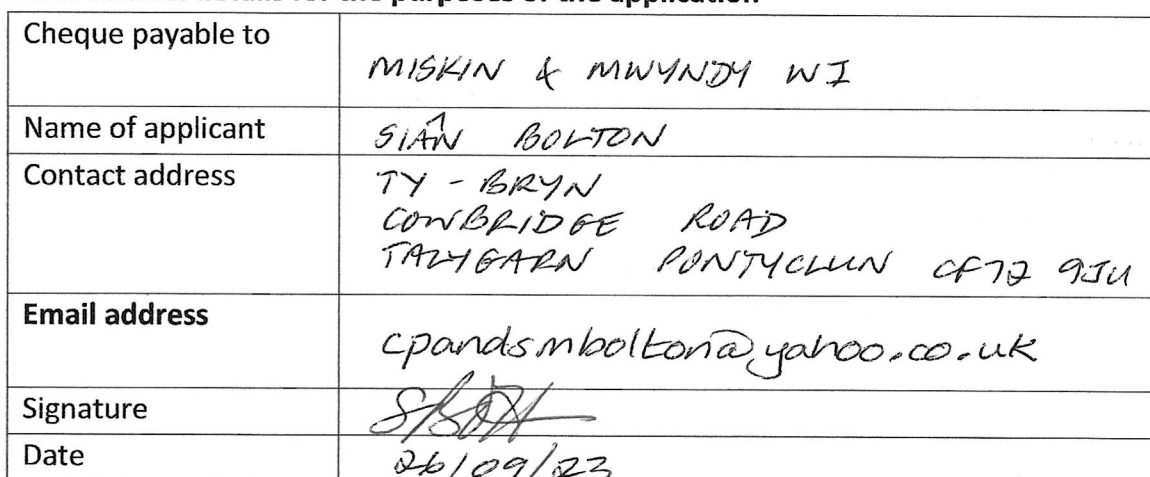 Cheque payable to
MISKIN & MWYNDY WI
Name of applicant
SIÂN BOLTON
Contact address
TY - BRYN
COWBRIDGE ROAD
TALYGARN PONTYCLUN CF72 9JU
Email address
cpandsmbolton@yahoo.co.uk
Signature
Date
26/09/23